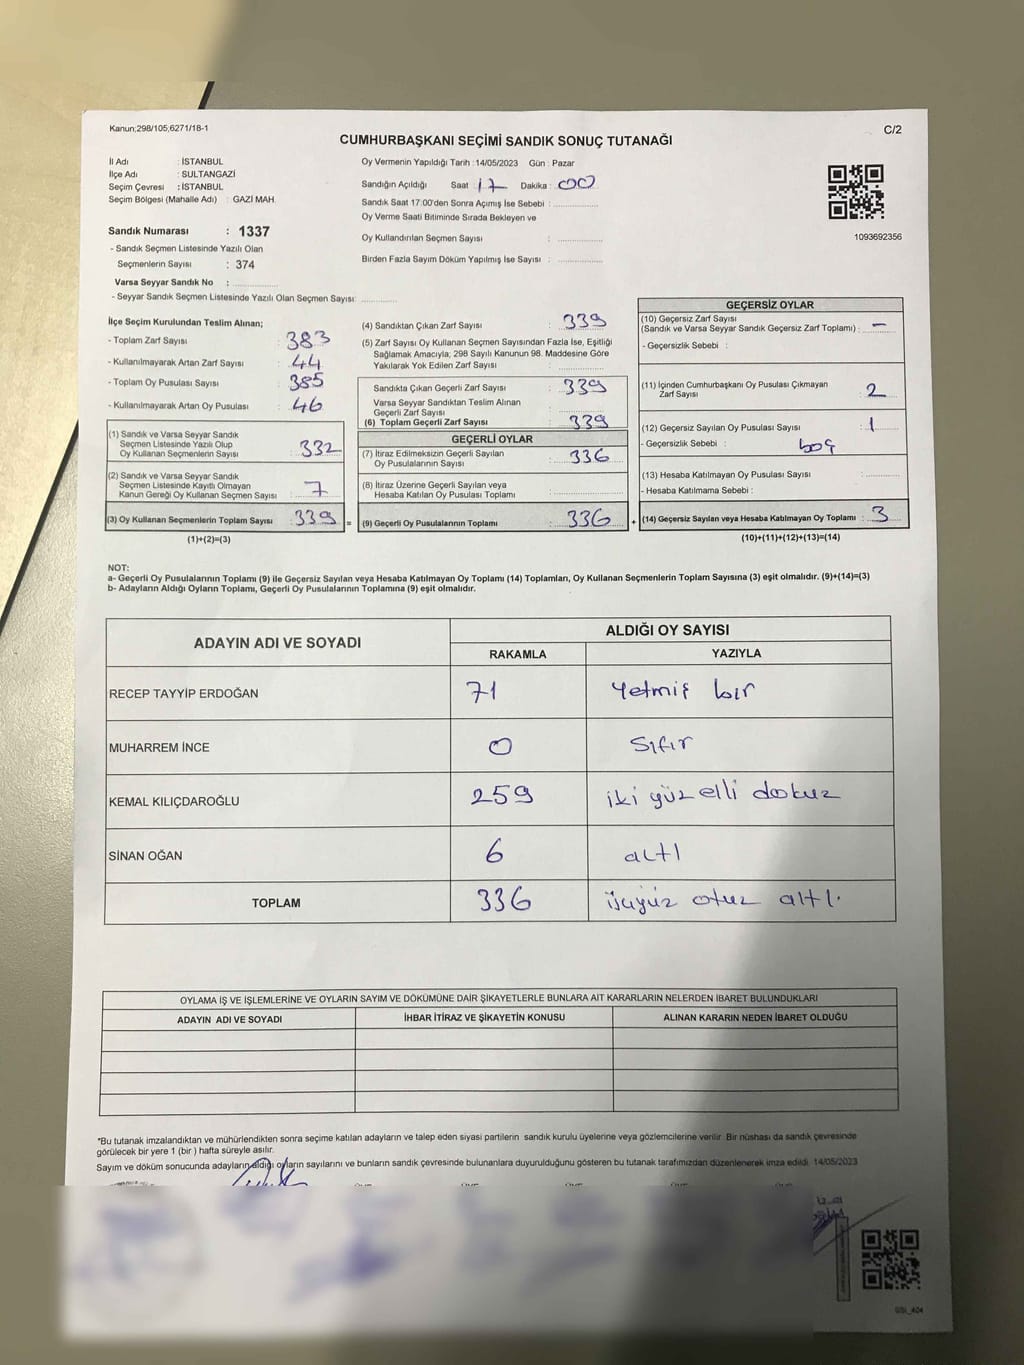 Kanun;298/105;6271/18-1
C/2
CUMHURBAŞKANI SEÇİMİ SANDIK SONUÇ TUTANAĞI
İl Adı : İSTANBUL
İlçe Adı : SULTANGAZİ
Seçim Çevresi : İSTANBUL
Seçim Bölgesi (Mahalle Adı) : GAZİ MAH.
Sandık Numarası : 1337
- Sandık Seçmen Listesinde Yazılı Olan
Seçmenlerin Sayısı : 374
Varsa Seyyar Sandık No :
- Seyyar Sandık Seçmen Listesinde Yazılı Olan Seçmen Sayısı:
Oy Vermenin Yapıldığı Tarih : 14/05/2023 Gün : Pazar
Sandığın Açıldığı Saat : 17 Dakika : 00
Sandık Saat 17:00'den Sonra Açımış İse Sebebi :
Oy Verme Saati Bitiminde Sırada Bekleyen ve
Oy Kullandırılan Seçmen Sayısı :
Birden Fazla Sayım Döküm Yapılmış İse Sayısı :
1093692356
İlçe Seçim Kurulundan Teslim Alınan;
- Toplam Zarf Sayısı : 383
- Kullanılmayarak Artan Zarf Sayısı : 44
- Toplam Oy Pusulası Sayısı : 385
- Kullanılmayarak Artan Oy Pusulası : 46
(1) Sandık ve Varsa Seyyar Sandık
Seçmen Listesinde Yazılı Olup
Oy Kullanan Seçmenlerin Sayısı : 332
(2) Sandık ve Varsa Seyyar Sandık
Seçmen Listesinde Kayıtlı Olmayan
Kanun Gereği Oy Kullanan Seçmen Sayısı : 7
(3) Oy Kullanan Seçmenlerin Toplam Sayısı : 339 =
(1)+(2)=(3)
(4) Sandıktan Çıkan Zarf Sayısı : 339
(5) Zarf Sayısı Oy Kullanan Seçmen Sayısından Fazla İse, Eşitliği
Sağlamak Amacıyla; 298 Sayılı Kanunun 98. Maddesine Göre
Yakılarak Yok Edilen Zarf Sayısı :
Sandıkta Çıkan Geçerli Zarf Sayısı : 339
Varsa Seyyar Sandıktan Teslim Alınan
Geçerli Zarf Sayısı :
(6) Toplam Geçerli Zarf Sayısı : 339
GEÇERLİ OYLAR
(7) İtiraz Edilmeksizin Geçerli Sayılan
Oy Pusulalarının Sayısı : 336
(8) İtiraz Üzerine Geçerli Sayılan veya
Hesaba Katılan Oy Pusulası Toplamı :
(9) Geçerli Oy Pusulalarının Toplamı : 336 +
GEÇERSİZ OYLAR
(10) Geçersiz Zarf Sayısı
(Sandık ve Varsa Seyyar Sandık Geçersiz Zarf Toplamı) : -
- Geçersizlik Sebebi :
(11) İçinden Cumhurbaşkanı Oy Pusulası Çıkmayan
Zarf Sayısı : 2
(12) Geçersiz Sayılan Oy Pusulası Sayısı : 1
- Geçersizlik Sebebi : boş
(13) Hesaba Katılmayan Oy Pusulası Sayısı :
- Hesaba Katılmama Sebebi :
(14) Geçersiz Sayılan veya Hesaba Katılmayan Oy Toplamı : 3
(10)+(11)+(12)+(13)=(14)
NOT:
a- Geçerli Oy Pusulalarının Toplamı (9) ile Geçersiz Sayılan veya Hesaba Katılmayan Oy Toplamı (14) Toplamları, Oy Kullanan Seçmenlerin Toplam Sayısına (3) eşit olmalıdır. (9)+(14)=(3)
b- Adayların Aldığı Oyların Toplamı, Geçerli Oy Pusulalarının Toplamına (9) eşit olmalıdır.
ADAYIN ADI VE SOYADI
ALDIĞI OY SAYISI
RAKAMLA YAZIYLA
RECEP TAYYİP ERDOĞAN 71 Yetmiş bir
MUHARREM İNCE 0 Sıfır
KEMAL KILIÇDAROĞLU 259 iki yüz elli dokuz
SİNAN OĞAN 6 altı
TOPLAM 336 üçyüz otuz altı.
OYLAMA İŞ VE İŞLEMLERİNE VE OYLARIN SAYIM VE DÖKÜMÜNE DAİR ŞİKAYETLERLE BUNLARA AİT KARARLARIN NELERDEN İBARET BULUNDUKLARI
ADAYIN ADI VE SOYADI İHBAR İTİRAZ VE ŞİKAYETİN KONUSU ALINAN KARARIN NEDEN İBARET OLDUĞU
*Bu tutanak imzalandıktan ve mühürlendikten sonra seçime katılan adayların ve talep eden siyasi partilerin sandık kurulu üyelerine veya gözlemcilerine verilir. Bir nüshası da sandık çevresinde
görülecek bir yere 1 (bir) hafta süreyle asılır.
Sayım ve döküm sonucunda adayların aldığı oyların sayılarını ve bunların sandık çevresinde bulunanlara duyurulduğunu gösteren bu tutanak tarafımızdan düzenlenerek imza edildi. 14/05/2023